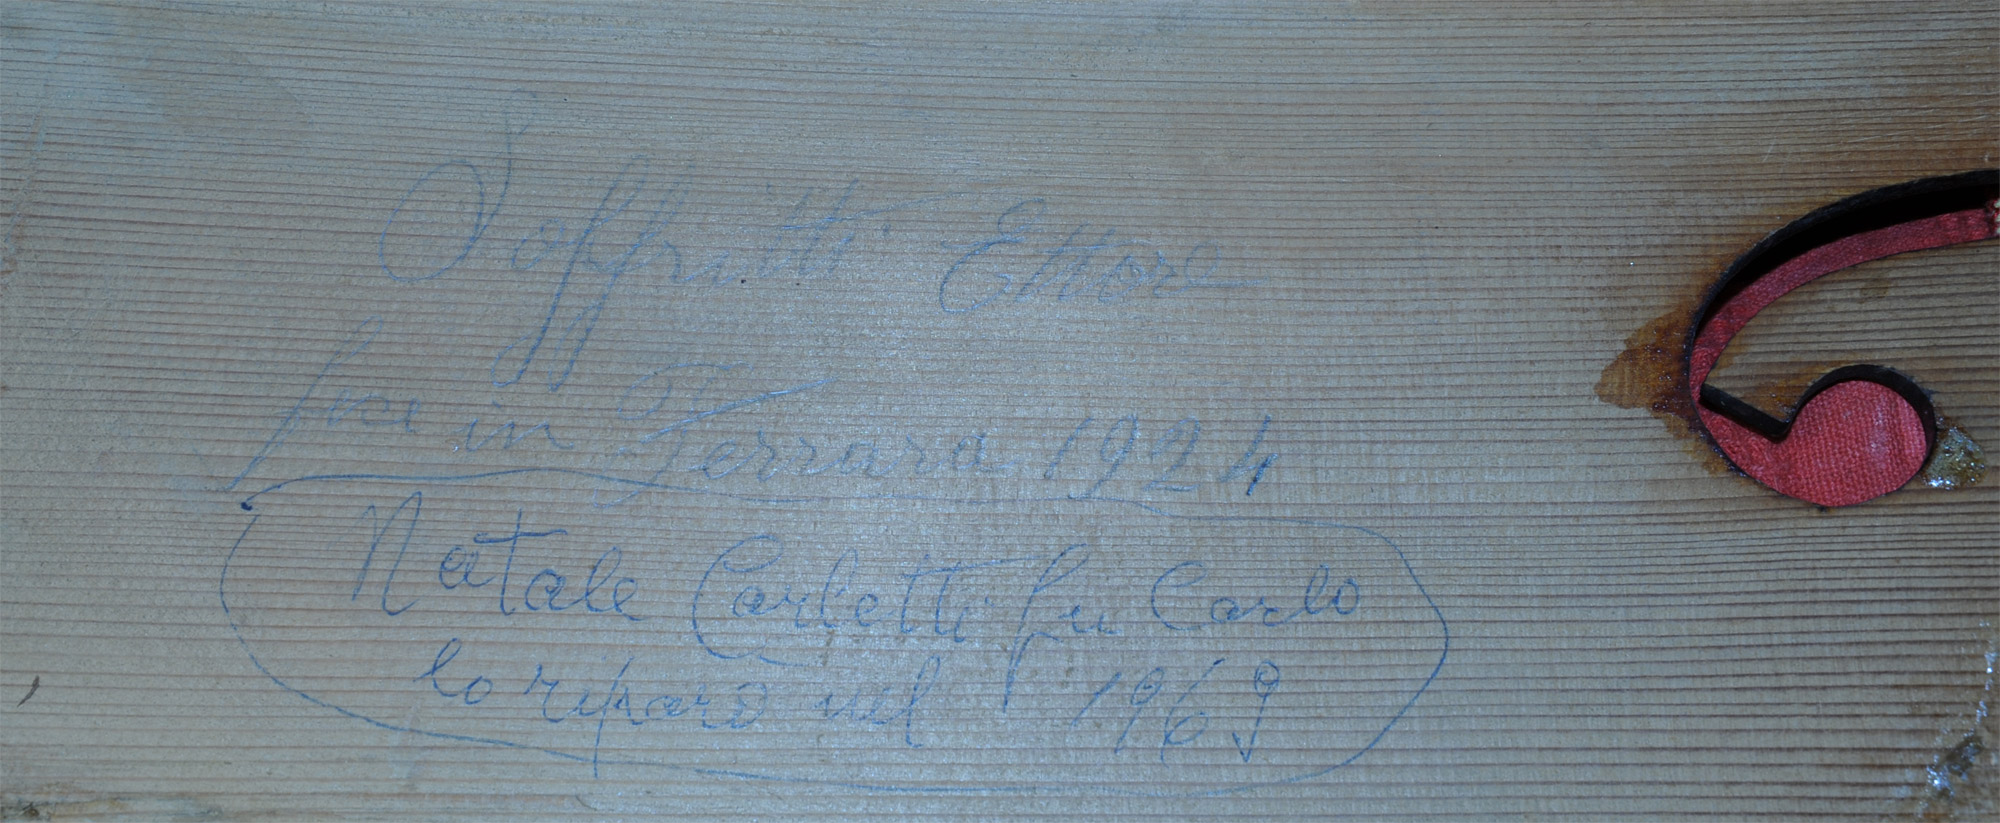 Soffritti Ettore
fece in Ferrara 1924
Natale Carletti fu Carlo
lo riparò nel 1969